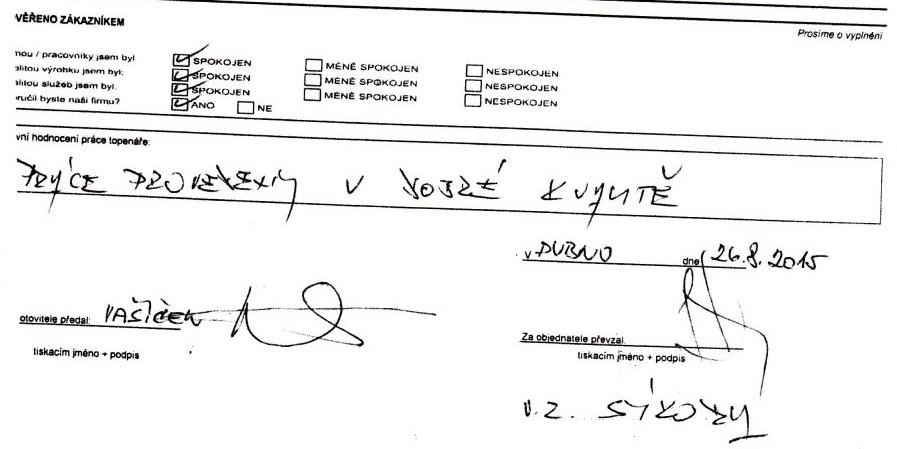 VĚŘENO ZÁKAZNÍKEM
Prosíme o vyplnění
nou / pracovníky jsem byl SPOKOJEN MÉNĚ SPOKOJEN NESPOKOJEN
alitou výrobku jsem byl: SPOKOJEN MÉNĚ SPOKOJEN NESPOKOJEN
alitou služeb jsem byl. SPOKOJEN MÉNĚ SPOKOJEN NESPOKOJEN
ručil byste naši firmu? ANO NE
vní hodnocení práce topenáře:
PRÁCE PROVEDENY V DOBRÉ KVALITĚ
v DUBNO dne 26.8.2015
otovitele předal: VAŠÍČEK
Za objednatele převzal:
tiskacím jméno + podpis
tiskacím jméno + podpis
v.z.